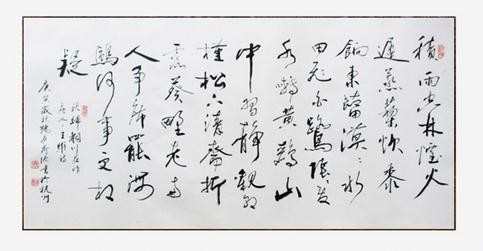 積雨空林煙火
遲蒸藜炊黍
餉東菑漠〻水
田飛白鷺陰〻夏
木囀黃鸝山
中習靜觀朝
槿松下清齋折
露葵野老與
人爭席罷海
鷗何事更相
疑
輞川莊作
唐人王維詩